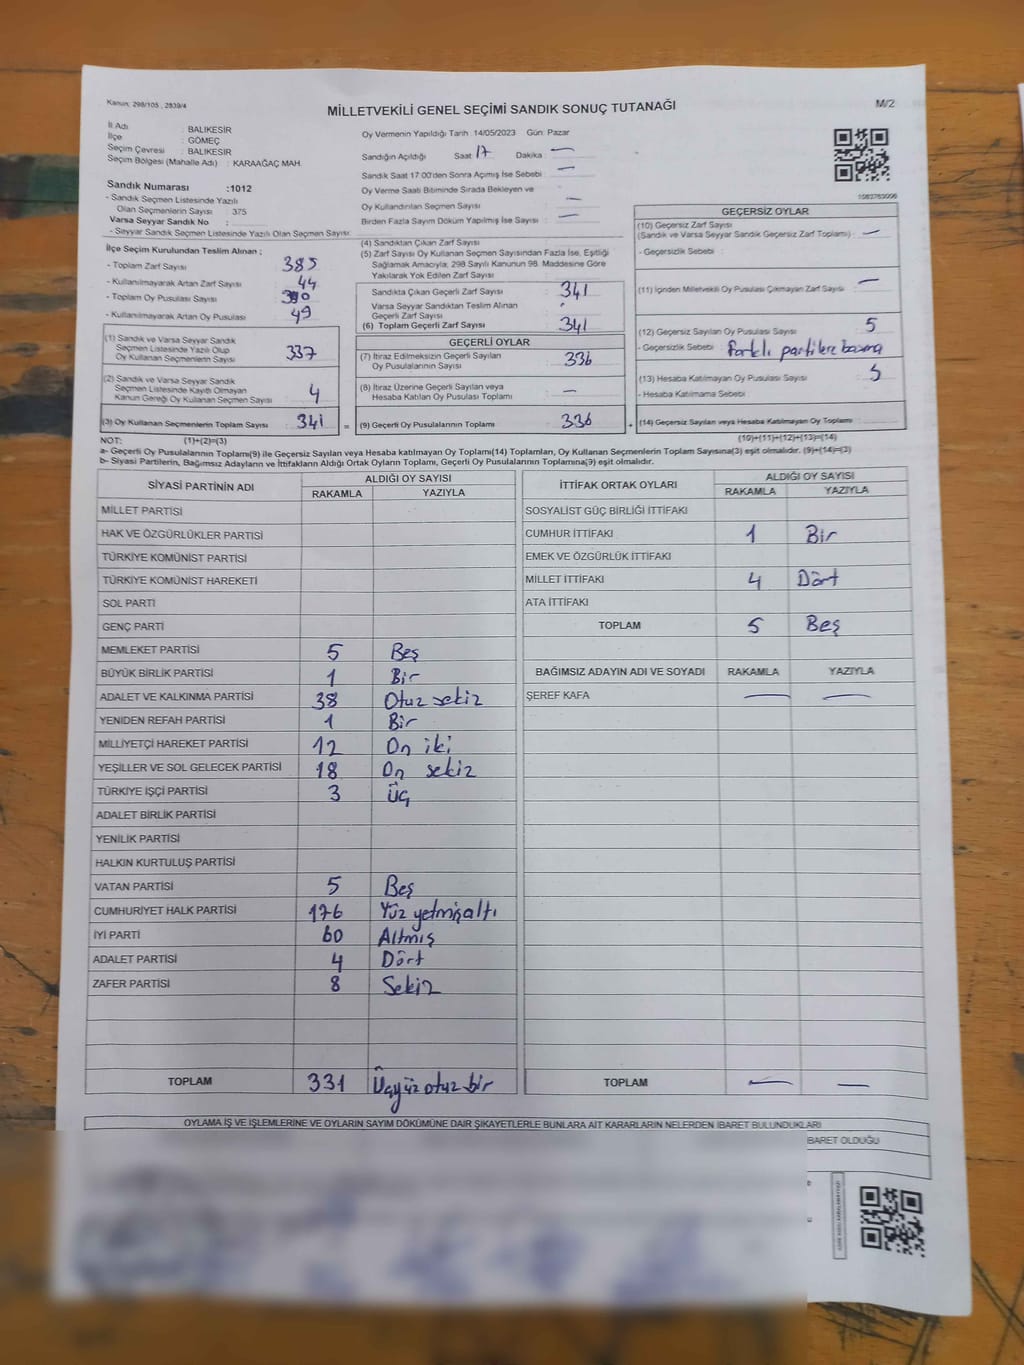 Kanun: 298/105 , 2839/4
MİLLETVEKİLİ GENEL SEÇİMİ SANDIK SONUÇ TUTANAĞI
M/2
İl Adı : BALIKESİR
İlçe : GÖMEÇ
Seçim Çevresi : BALIKESİR
Seçim Bölgesi (Mahalle Adı) : KARAAĞAÇ MAH.
Sandık Numarası :1012
- Sandık Seçmen Listesinde Yazılı
Olan Seçmenlerin Sayısı : 375
Varsa Seyyar Sandık No :
- Seyyar Sandık Seçmen Listesinde Yazılı Olan Seçmen Sayısı:
Oy Vermenin Yapıldığı Tarih :14/05/2023 Gün: Pazar
Sandığın Açıldığı Saat : 17 Dakika : —
Sandık Saat 17:00'den Sonra Açımış İse Sebebi : —
Oy Verme Saati Bitiminde Sırada Bekleyen ve
Oy Kullandırılan Seçmen Sayısı : —
Birden Fazla Sayım Döküm Yapılmış İse Sayısı : —
1083763006
İlçe Seçim Kurulundan Teslim Alınan ;
- Toplam Zarf Sayısı : 385
- Kullanılmayarak Artan Zarf Sayısı : 44
- Toplam Oy Pusulası Sayısı : 390
- Kullanılmayarak Artan Oy Pusulası : 49
(1) Sandık ve Varsa Seyyar Sandık
Seçmen Listesinde Yazılı Olup
Oy Kullanan Seçmenlerin Sayısı : 337
(2) Sandık ve Varsa Seyyar Sandık
Seçmen Listesinde Kayıtlı Olmayan
Kanun Gereği Oy Kullanan Seçmen Sayısı : 4
(3) Oy Kullanan Seçmenlerin Toplam Sayısı : 341
(4) Sandıktan Çıkan Zarf Sayısı :
(5) Zarf Sayısı Oy Kullanan Seçmen Sayısından Fazla İse, Eşitliği
Sağlamak Amacıyla; 298 Sayılı Kanunun 98. Maddesine Göre
Yakılarak Yok Edilen Zarf Sayısı :
Sandıkta Çıkan Geçerli Zarf Sayısı : 341
Varsa Seyyar Sandıktan Teslim Alınan
Geçerli Zarf Sayısı :
(6) Toplam Geçerli Zarf Sayısı : 341
GEÇERLİ OYLAR
(7) İtiraz Edilmeksizin Geçerli Sayılan
Oy Pusulalarının Sayısı : 336
(8) İtiraz Üzerine Geçerli Sayılan veya
Hesaba Katılan Oy Pusulası Toplamı : —
= (9) Geçerli Oy Pusulalarının Toplamı : 336
GEÇERSİZ OYLAR
(10) Geçersiz Zarf Sayısı
(Sandık ve Varsa Seyyar Sandık Geçersiz Zarf Toplamı) : —
- Geçersizlik Sebebi :
(11) İçinden Milletvekili Oy Pusulası Çıkmayan Zarf Sayısı : —
(12) Geçersiz Sayılan Oy Pusulası Sayısı : 5
- Geçersizlik Sebebi : Farklı partilere basma
(13) Hesaba Katılmayan Oy Pusulası Sayısı : 5
- Hesaba Katılmama Sebebi :
+ (14) Geçersiz Sayılan veya Hesaba Katılmayan Oy Toplamı :
NOT: (1)+(2)=(3) (10)+(11)+(12)+(13)=(14)
a- Geçerli Oy Pusulalarının Toplamı(9) ile Geçersiz Sayılan veya Hesaba katılmayan Oy Toplamı(14) Toplamları, Oy Kullanan Seçmenlerin Toplam Sayısına(3) eşit olmalıdır. (9)+(14)=(3)
b- Siyasi Partilerin, Bağımsız Adayların ve İttifakların Aldığı Ortak Oyların Toplamı, Geçerli Oy Pusulalarının Toplamına(9) eşit olmalıdır.
SİYASİ PARTİNİN ADI ALDIĞI OY SAYISI
RAKAMLA YAZIYLA
MİLLET PARTİSİ
HAK VE ÖZGÜRLÜKLER PARTİSİ
TÜRKİYE KOMÜNİST PARTİSİ
TÜRKİYE KOMÜNİST HAREKETİ
SOL PARTİ
GENÇ PARTİ
MEMLEKET PARTİSİ 5 Beş
BÜYÜK BİRLİK PARTİSİ 1 Bir
ADALET VE KALKINMA PARTİSİ 38 Otuz sekiz
YENİDEN REFAH PARTİSİ 1 Bir
MİLLİYETÇİ HAREKET PARTİSİ 12 On iki
YEŞİLLER VE SOL GELECEK PARTİSİ 18 On sekiz
TÜRKİYE İŞÇİ PARTİSİ 3 Üç
ADALET BİRLİK PARTİSİ
YENİLİK PARTİSİ
HALKIN KURTULUŞ PARTİSİ
VATAN PARTİSİ 5 Beş
CUMHURİYET HALK PARTİSİ 176 Yüz yetmişaltı
İYİ PARTİ 60 Altmış
ADALET PARTİSİ 4 Dört
ZAFER PARTİSİ 8 Sekiz
TOPLAM 331 Üçyüz otuz bir
İTTİFAK ORTAK OYLARI ALDIĞI OY SAYISI
RAKAMLA YAZIYLA
SOSYALİST GÜÇ BİRLİĞİ İTTİFAKI
CUMHUR İTTİFAKI 1 Bir
EMEK VE ÖZGÜRLÜK İTTİFAKI
MİLLET İTTİFAKI 4 Dört
ATA İTTİFAKI
TOPLAM 5 Beş
BAĞIMSIZ ADAYIN ADI VE SOYADI RAKAMLA YAZIYLA
ŞEREF KAFA — —
TOPLAM — —
OYLAMA İŞ VE İŞLEMLERİNE VE OYLARIN SAYIM DÖKÜMÜNE DAİR ŞİKAYETLERLE BUNLARA AİT KARARLARIN NELERDEN İBARET BULUNDUKLARI
BARET OLDUĞU